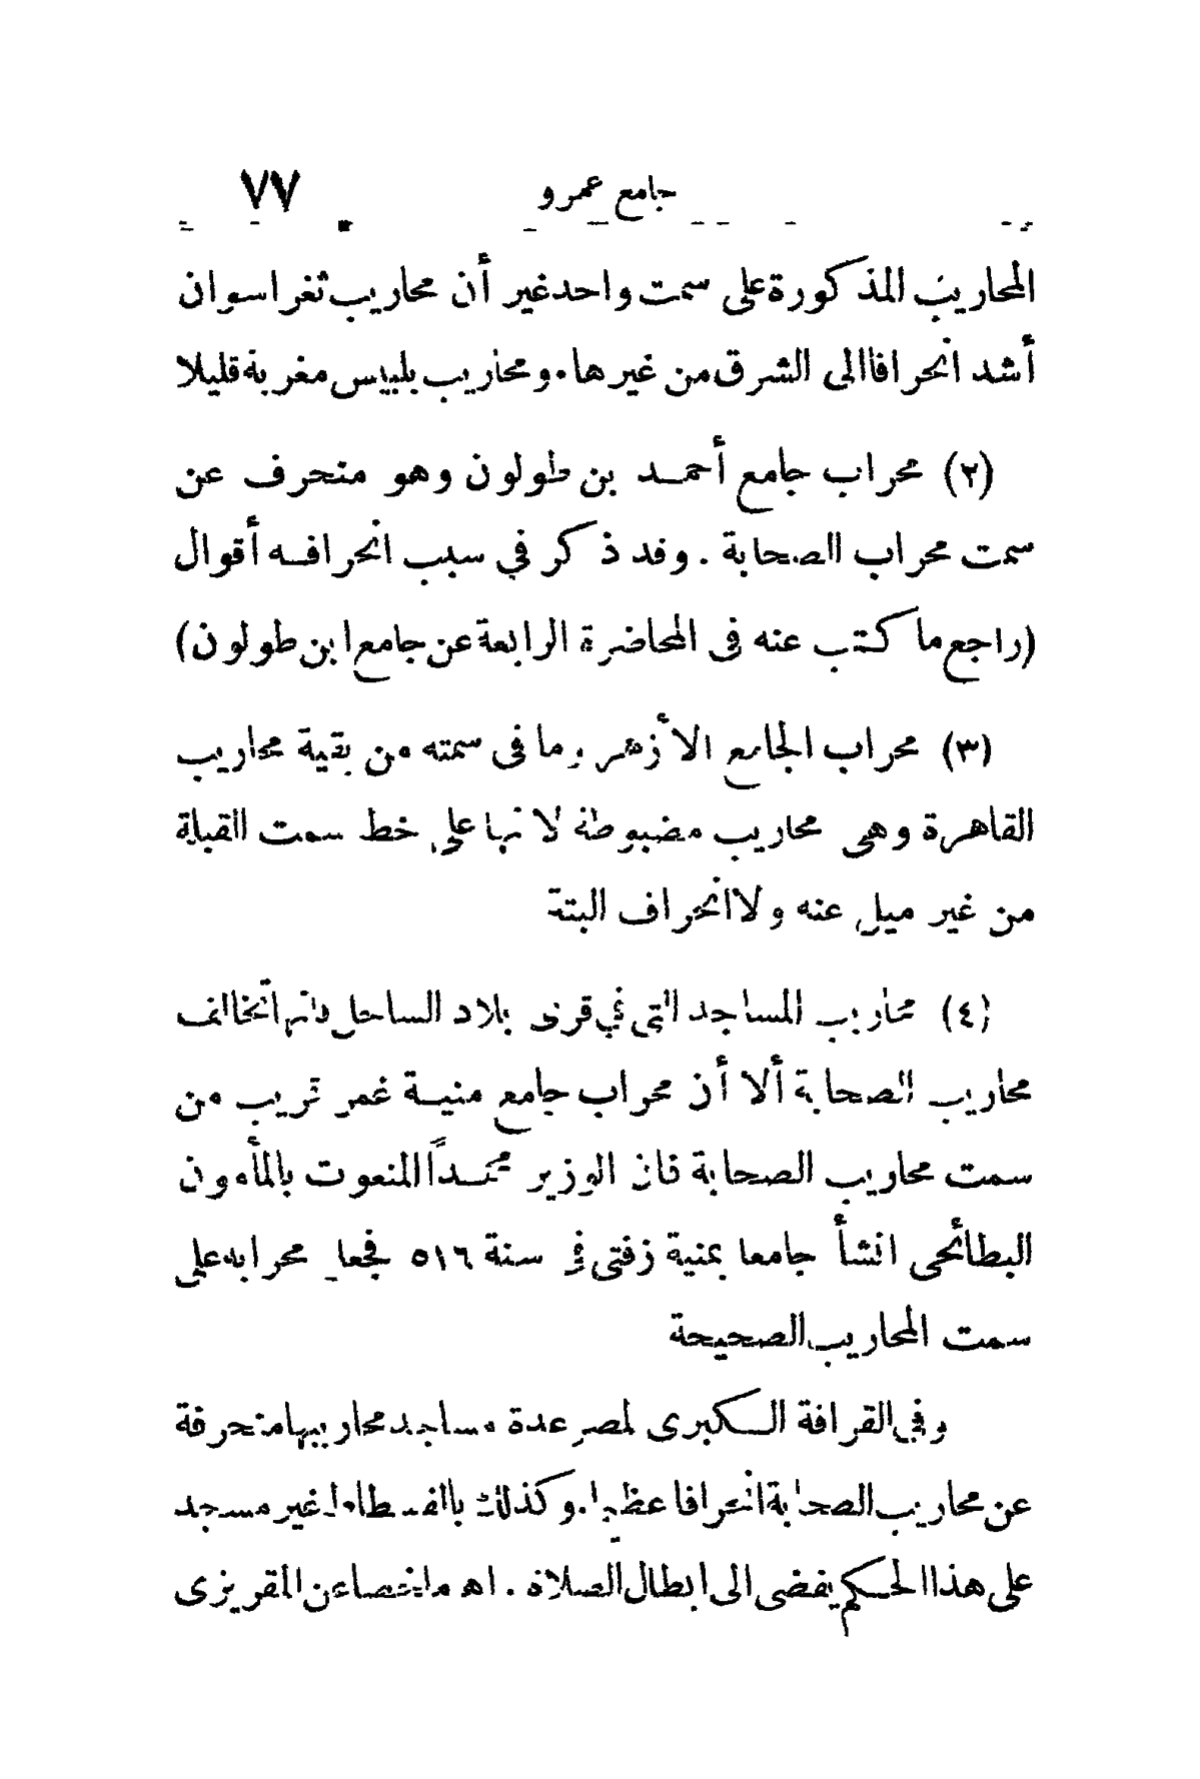 جامع عمرو ٧٧
المحاريب المذكورة على سمت واحد غير أن محاريب ثغر اسوان
أشد انحرافا الى الشرق من غيرها. ومحاريب بلبيس مغربة قليلا
(٢) محراب جامع أحمد بن طولون وهو منحرف عن
سمت محراب الصحابة . وقد ذكر في سبب انحرافه أقوال
(راجع ما كتب عنه فى المحاضرة الرابعة عن جامع ابن طولون)
(٣) محراب الجامع الأزهر وما فى سمته من بقية محاريب
القاهرة وهى محاريب مضبوطة لانها على خط سمت القبلة
من غير ميل عنه ولا انحراف البتة
(٤) محاريب المساجد التى في قرى بلاد الساحل فانها تخالف
محاريب الصحابة ألا أن محراب جامع منية غمر قريب من
سمت محاريب الصحابة فان الوزير محمداً المنعوت بالمأمون
البطائحى انشأ جامعا بمنية زفتى في سنة ٥١٦ فجعل محرابه على
سمت المحاريب الصحيحة
وفي القرافة الكبرى لمصر عدة مساجد محاريبها منحرفة
عن محاريب الصحابة انحرافا عظيما. وكذلك بالفسطاط غير مسجد
على هذا الحكم يفضى الى ابطال الصلاة . اه ملخصا عن المقريزى